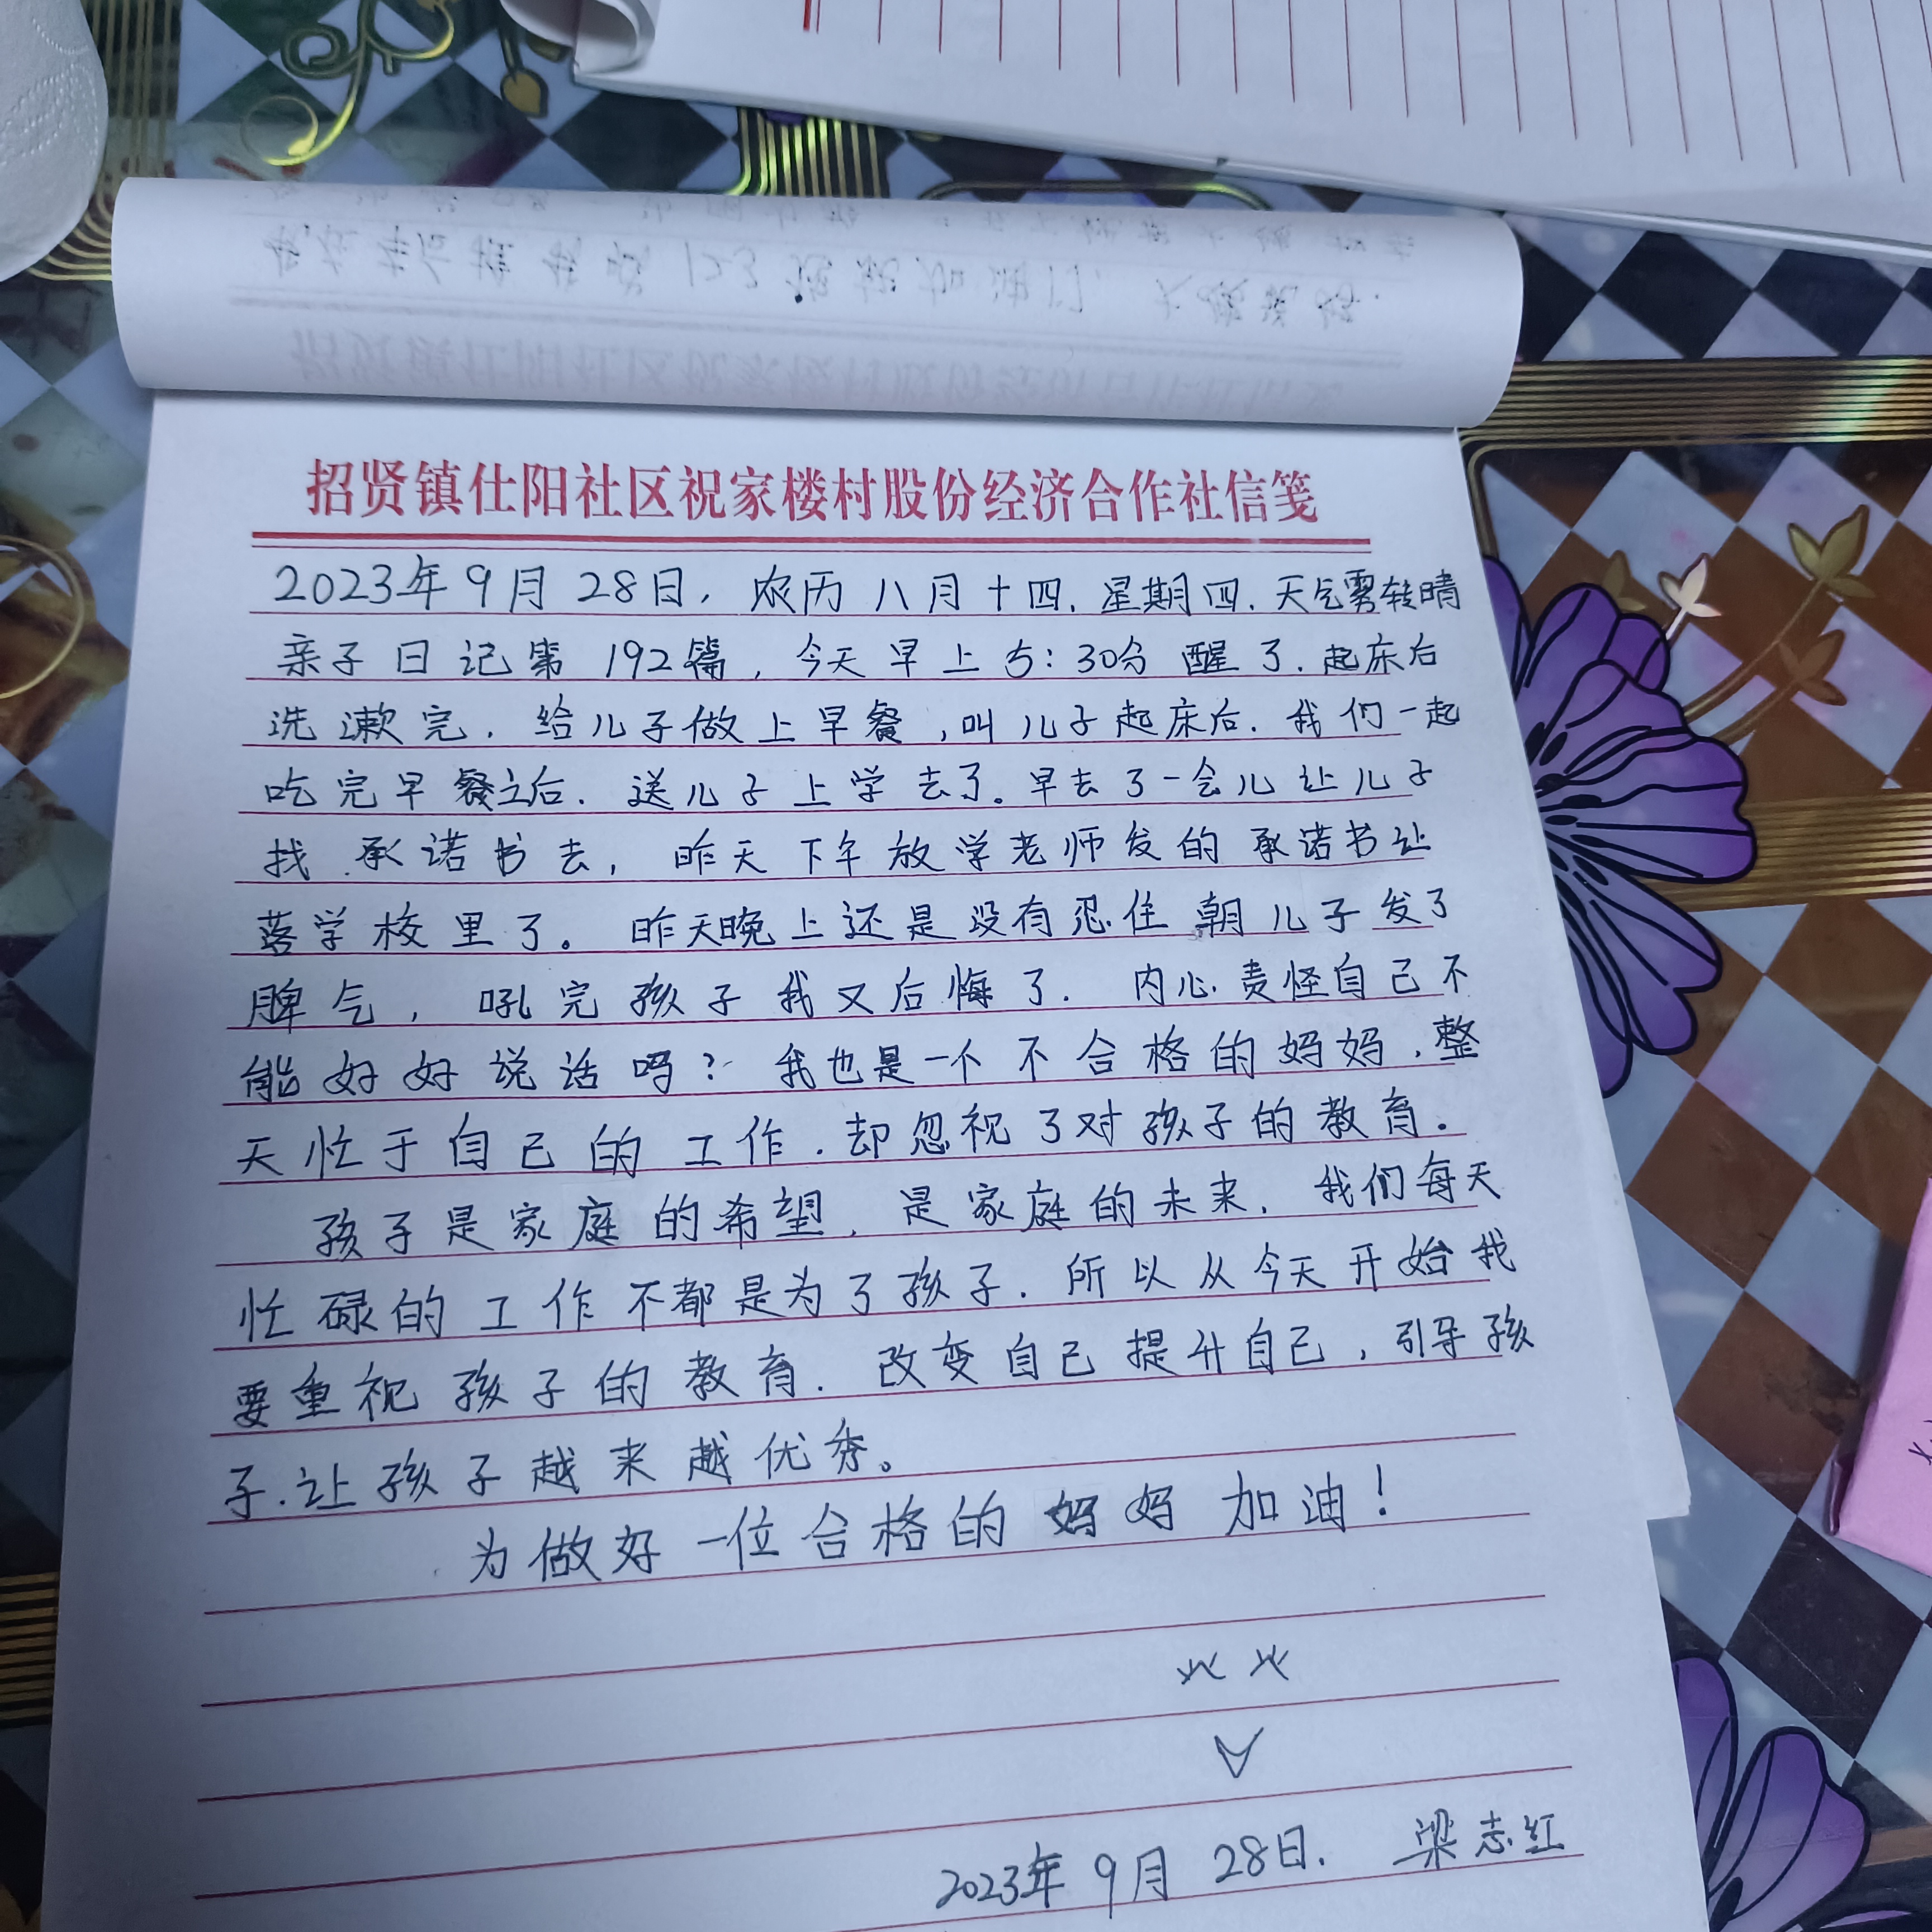 招贤镇仕阳社区祝家楼村股份经济合作社信笺
2023年9月28日，农历八月十四.星期四.天气雾转晴
亲子日记第192篇，今天早上5:30分醒了.起床后
洗漱完.给儿子做上早餐,叫儿子起床后.我们一起
吃完早餐之后.送儿子上学去了。早去了一会儿让儿子
找承诺书去，昨天下午放学老师发的承诺书让
落学校里了。昨天晚上还是没有忍住朝儿子发了
脾气，吼完孩子我又后悔了.内心责怪自己不
能好好说话吗？我也是一个不合格的妈妈.整
天忙于自己的工作.却忽视了对孩子的教育.
孩子是家庭的希望，是家庭的未来.我们每天
忙碌的工作不都是为了孩子.所以从今天开始我
要重视孩子的教育.改变自己提升自己，引导孩
子.让孩子越来越优秀。
为做好一位合格的妈妈加油！
2023年9月28日.梁志红